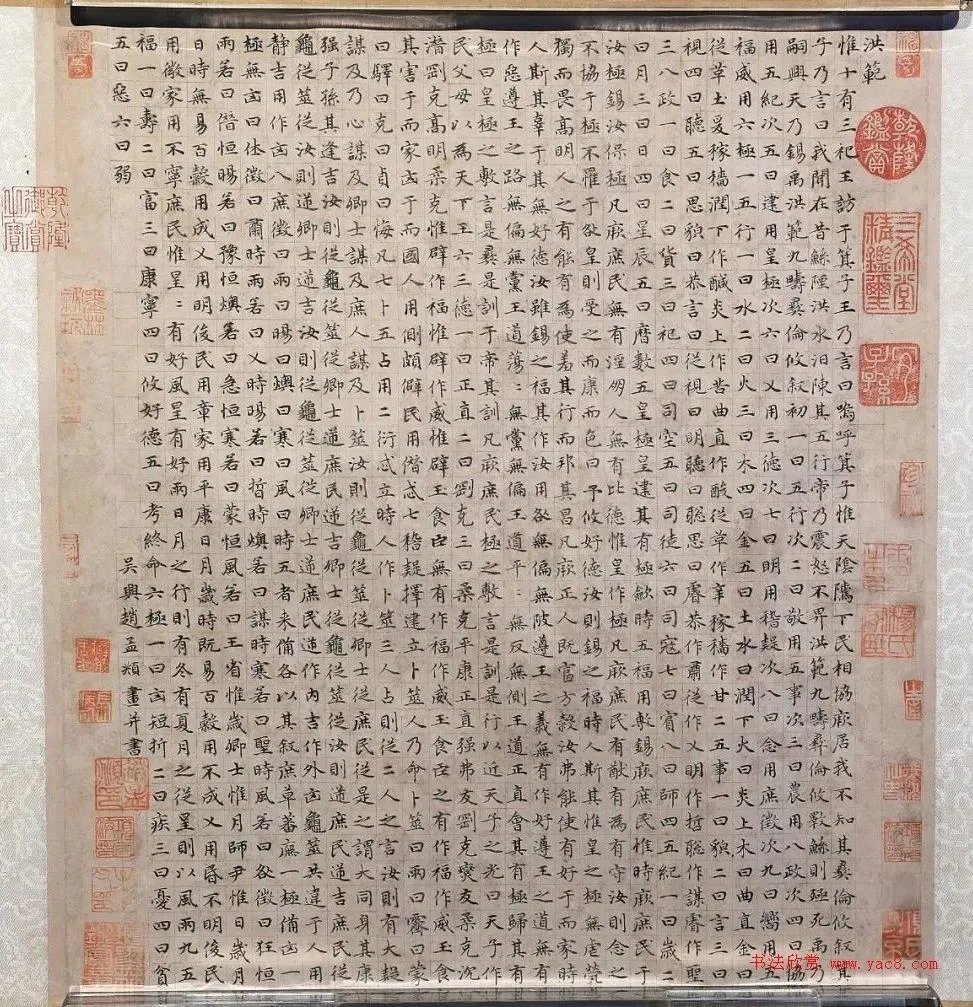 洪範
惟十有三祀王訪于箕子王乃言曰嗚呼箕子惟天陰隲下民相協厥居我不知其彝倫攸叙箕
子乃言曰我聞在昔鯀陻洪水汩陳其五行帝乃震怒不畀洪範九疇彝倫攸斁鯀則殛死禹乃
嗣興天乃錫禹洪範九疇彝倫攸叙初一曰五行次二曰敬用五事次三曰農用八政次四曰協
用五紀次五曰建用皇極次六曰乂用三德次七曰明用稽疑次八曰念用庶徵次九曰嚮用五
福威用六極一五行一曰水二曰火三曰木四曰金五曰土水曰潤下火曰炎上木曰曲直金曰
從革土爰稼穡潤下作鹹炎上作苦曲直作酸從革作辛稼穡作甘二五事一曰貌二曰言三曰
視四曰聽五曰思貌曰恭言曰從視曰明聽曰聰思曰睿恭作肅從作乂明作哲聰作謀睿作聖
三八政一曰食二曰貨三曰祀四曰司空五曰司徒六曰司寇七曰賓八曰師四五紀一曰歲二
曰月三曰日四曰星辰五曰曆數五皇極皇建其有極歛時五福用敷錫厥庶民惟時厥庶民于
汝極錫汝保極凡厥庶民無有淫朋人無有比德惟皇作極凡厥庶民有猷有為有守汝則念之
不協于極不罹于咎皇則受之而康而色曰予攸好德汝則錫之福時人斯其惟皇之極無虐煢
獨而畏高明人之有能有為使羞其行而邦其昌凡厥正人既富方穀汝弗能使有好于而家時
人斯其辜于其無好德汝雖錫之福其作汝用咎無偏無陂遵王之義無有作好遵王之道無有
作惡遵王之路無偏無黨王道蕩:無黨無偏王道平:無反無側王道正直會其有極歸其有
極曰皇極之敷言是彝是訓于帝其訓凡厥庶民極之敷言是訓是行以近天子之光曰天子作
民父母以為天下王六三德一曰正直二曰剛克三曰柔克平康正直强弗友剛克燮友柔克沉
潛剛克高明柔克惟辟作福惟辟作威惟辟玉食臣無有作福作威玉食臣之有作福作威玉食
其害于而家凶于而國人用側頗僻民用僭忒七稽疑擇建立卜筮人乃命卜筮曰雨曰霽曰蒙
曰驛曰克曰貞曰悔凡七卜五占用二衍忒立時人作卜筮三人占則從二人之言汝則有大疑
謀及乃心謀及卿士謀及庶人謀及卜筮汝則從龜從筮從卿士從庶民從是之謂大同身其康
强子孫其逢吉汝則從龜從筮從卿士逆庶民逆吉卿士從龜從筮從汝則逆庶民逆吉庶民從
龜從筮從汝則逆卿士逆吉汝則從龜從筮逆卿士逆庶民逆作內吉作外凶龜筮共違于人用
靜吉用作凶八庶徵曰雨曰暘曰燠曰寒曰風曰時五者来備各以其叙庶草蕃廡一極備凶一
極無凶曰休徵曰肅時雨若曰乂時暘若曰哲時燠若曰謀時寒若曰聖時風若曰咎徵曰狂恒
雨若曰僭恒暘若曰豫恒燠若曰急恒寒若曰蒙恒風若曰王省惟歲卿士惟月師尹惟日歲月
日時無易百穀用成乂用明俊民用章家用平康日月歲時既易百穀用不成乂用昏不明俊民
用微家用不寧庶民惟星:有好風星有好雨日月之行則有冬有夏月之從星則以風雨九五
福一曰壽二曰富三曰康寧四曰攸好德五曰考終命六極一曰凶短折二曰疾三曰憂四曰貧
五曰惡六曰弱
吳興趙孟頫畫并書
乾隆鑑賞
三希堂精鑑璽
宜子孫
乾隆御覽之寶
书法欣赏 www.yac8.com